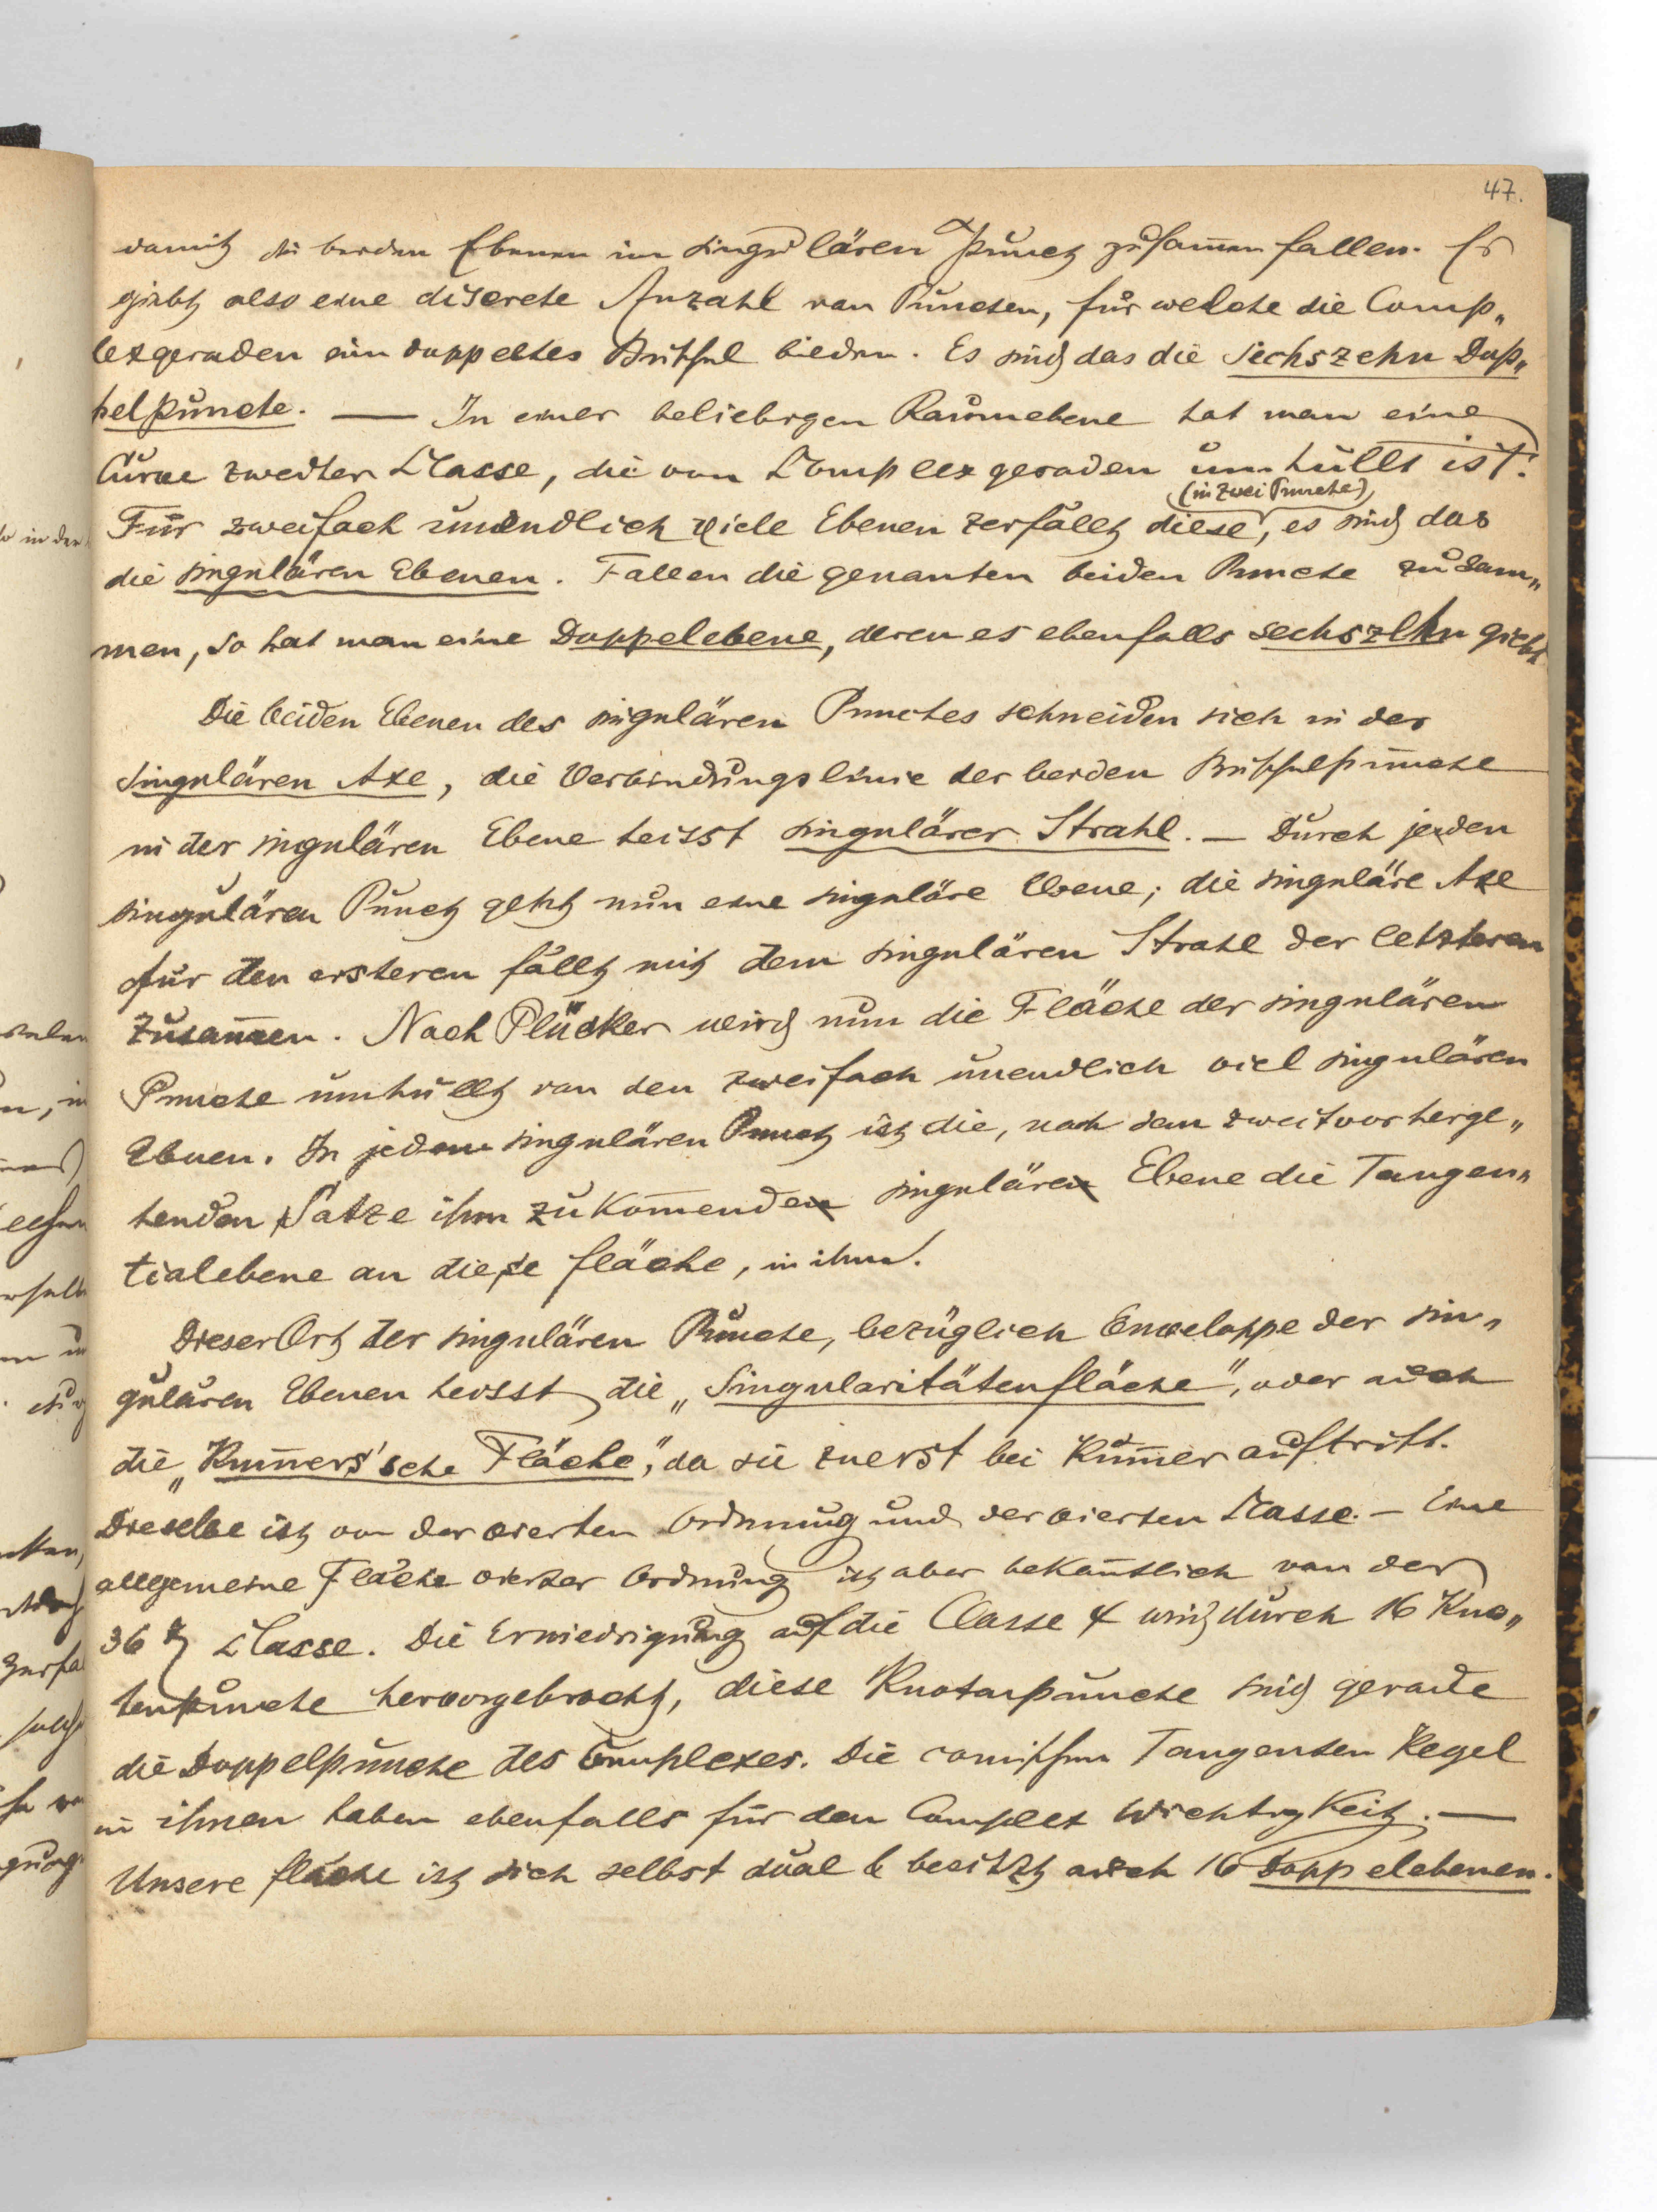 47.
damit die beiden Ebenen im singulären Punct zusam̅en fallen. Es
giebt also eine discrete Anzahl von Puncten, für welche die Comp„
lexgeraden ein doppeltes Büschel bilden. Es sind das die sechszehn Dop„
pelpuncte. — In einer beliebigen Raumebene hat man eine
Curve zweiter Klasse, die von Complexgeraden umhüllt ist.
(in zwei Puncte)
Für zweifach unendlich viele Ebenen zerfällt diese, es sind das
die singulären Ebenen. Fallen die genanten beiden Puncte zusam„
men, so hat man eine Doppelebene, deren es ebenfalls sechszehn giebt
Die beiden Ebenen des singulären Punctes schneiden sich in der
singulären Axe, die Verbindungslinie der beiden Büschelpuncte
in der singulären Ebene heisst singulärer Strahl. — Durch jeden
singulären Punct geht nun eine singuläre Ebene; die singuläre Axe
für den ersteren fällt mit dem singulären Strahl der letzteren
zusam̅en. Nach Plücker wird nun die Fläche der singulären
Puncte umhüllt von den zweifach unendlich viel singulären
Ebnen. In jedem singulären Punct ist die, nach dem zweitvorherge„
henden Satze ihm zukom̅ende singuläre Ebene die Tangen„
tialebene an diese Fläche, in ihm.
Dieser Ort der singulären Puncte, bezüglich Enveloppe der sin„
gulären Ebenen heisst die „Singularitätenfläche“, oder auch
die „Kum̅ers'sche Fläche“, da sie zuerst bei Kum̅er auftritt.
Dieselbe ist von der vierten Ordnung und der vierten Klasse. — Eine
allgemeine Fläche vierter Ordnung ist aber bekan̅tlich von der
36t Klasse. Die Erniedrigung auf die Classe 4 wird durch 16 Kno„
tenpuncte hervorgebracht, diese Knotenpuncte sind gerade
die Doppelpuncte des Complexes. Die conischen Tangenten Kegel
in ihnen haben ebenfalls für den Complex Wichtigkeit. —
Unsere Fläche ist sich selbst dual & besitzt auch 16 Doppelebenen.